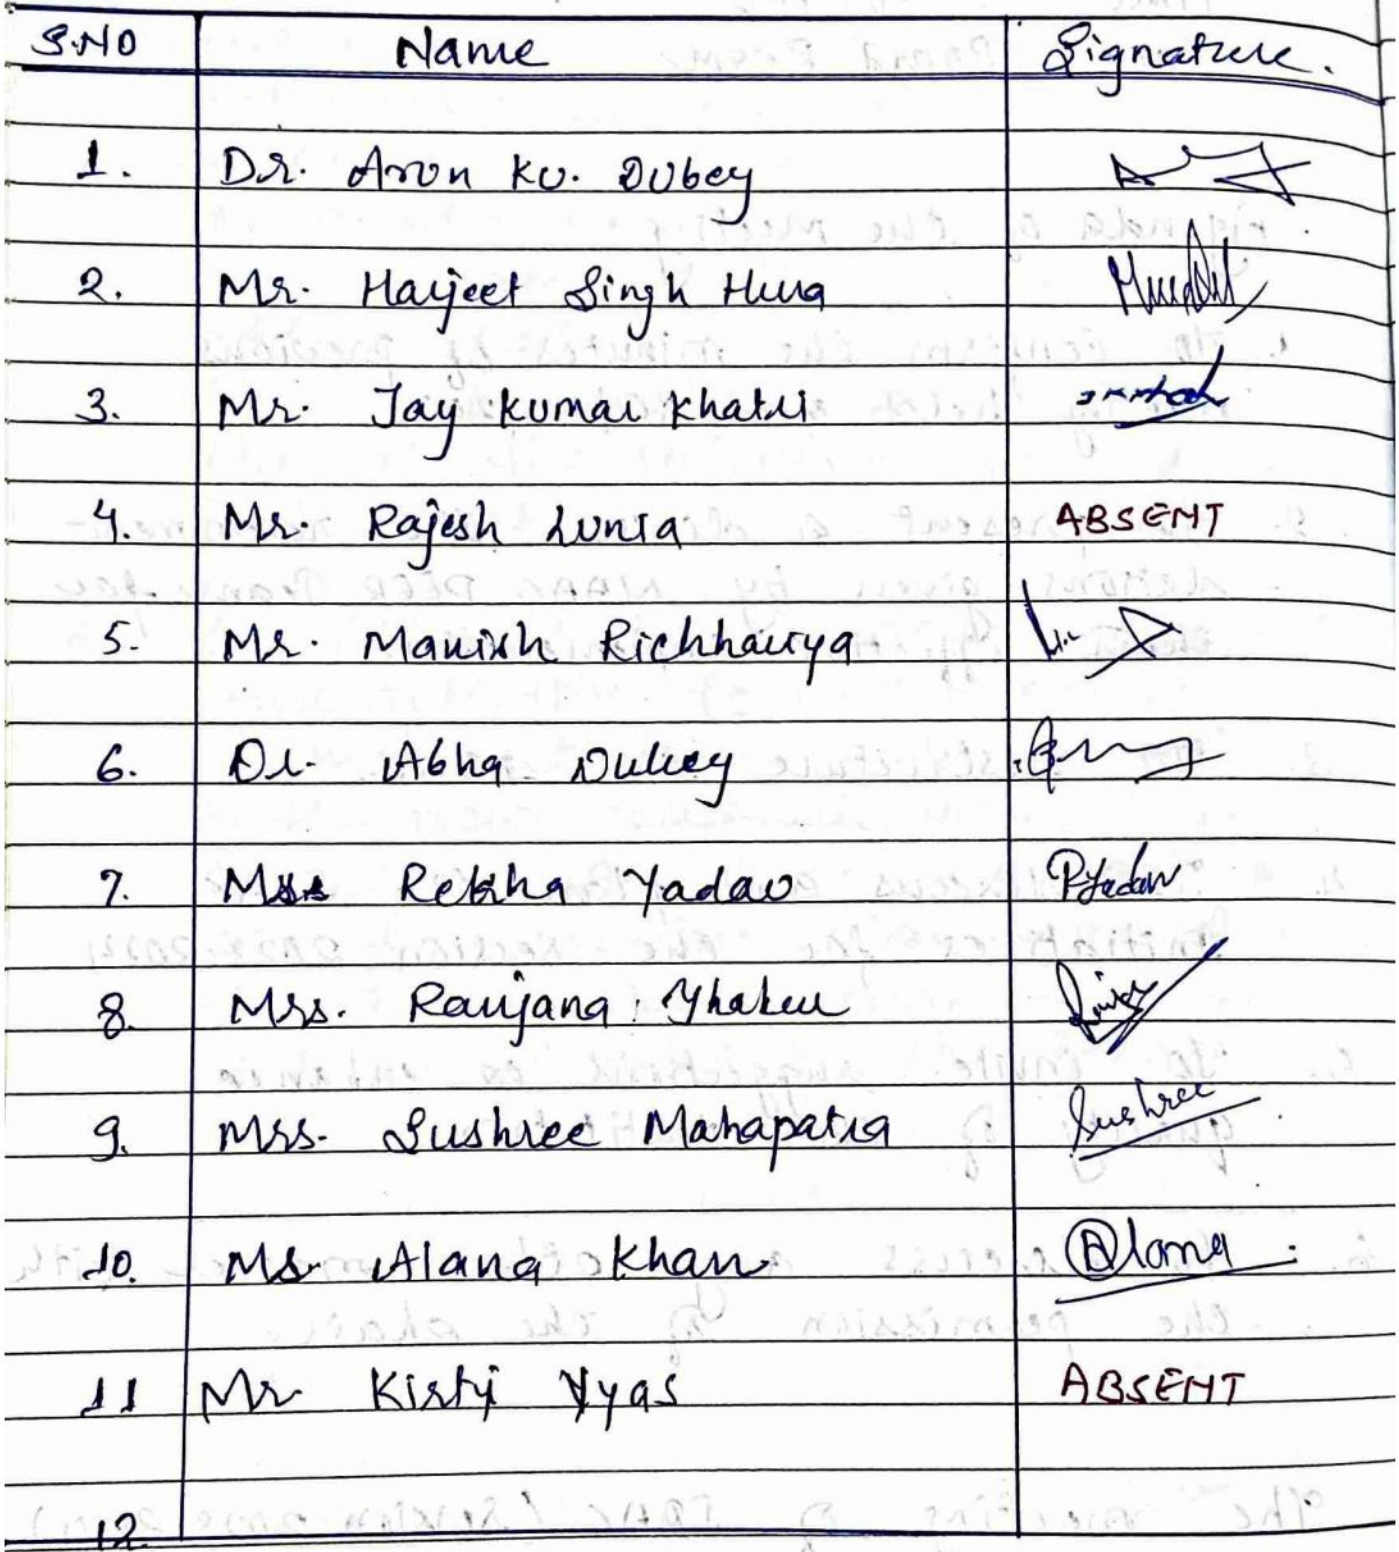 S.NO Name Signature.
1. Dr. Arun Ku. Dubey
2. Mr. Harjeet Singh Hura
3. Mr. Jay Kumar Khatri
4. Mr. Rajesh Lunia ABSENT
5. Mr. Manish Richhariya
6. Dr. Abha Dubey
7. Rekha Yadav PYadav
8. Mrs. Ranjana Thakur
9. Mrs. Sushree Mahapatra Sushree
10. Ms. Alana Khan Alana
11 Mr Kirti Vyas ABSENT
12.